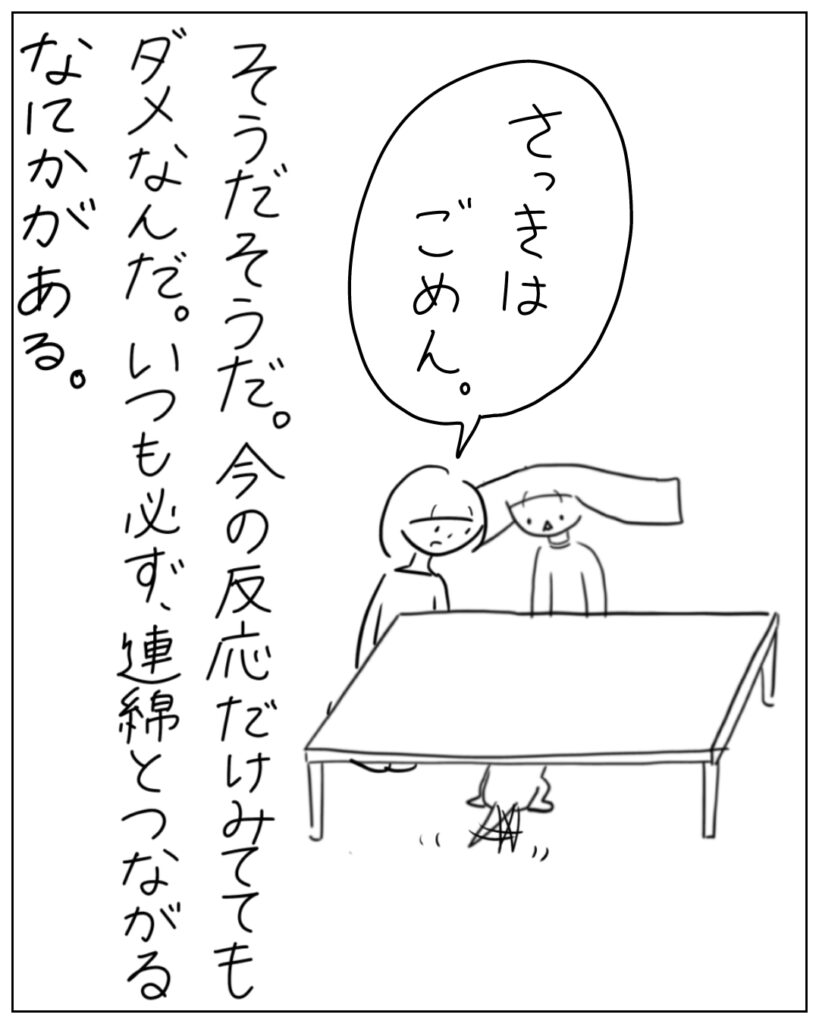 さっきは
ごめん。
そうだそうだ。今の反応だけみてても
ダメなんだ。いつも必ず、連綿とつながる
なにかがある。